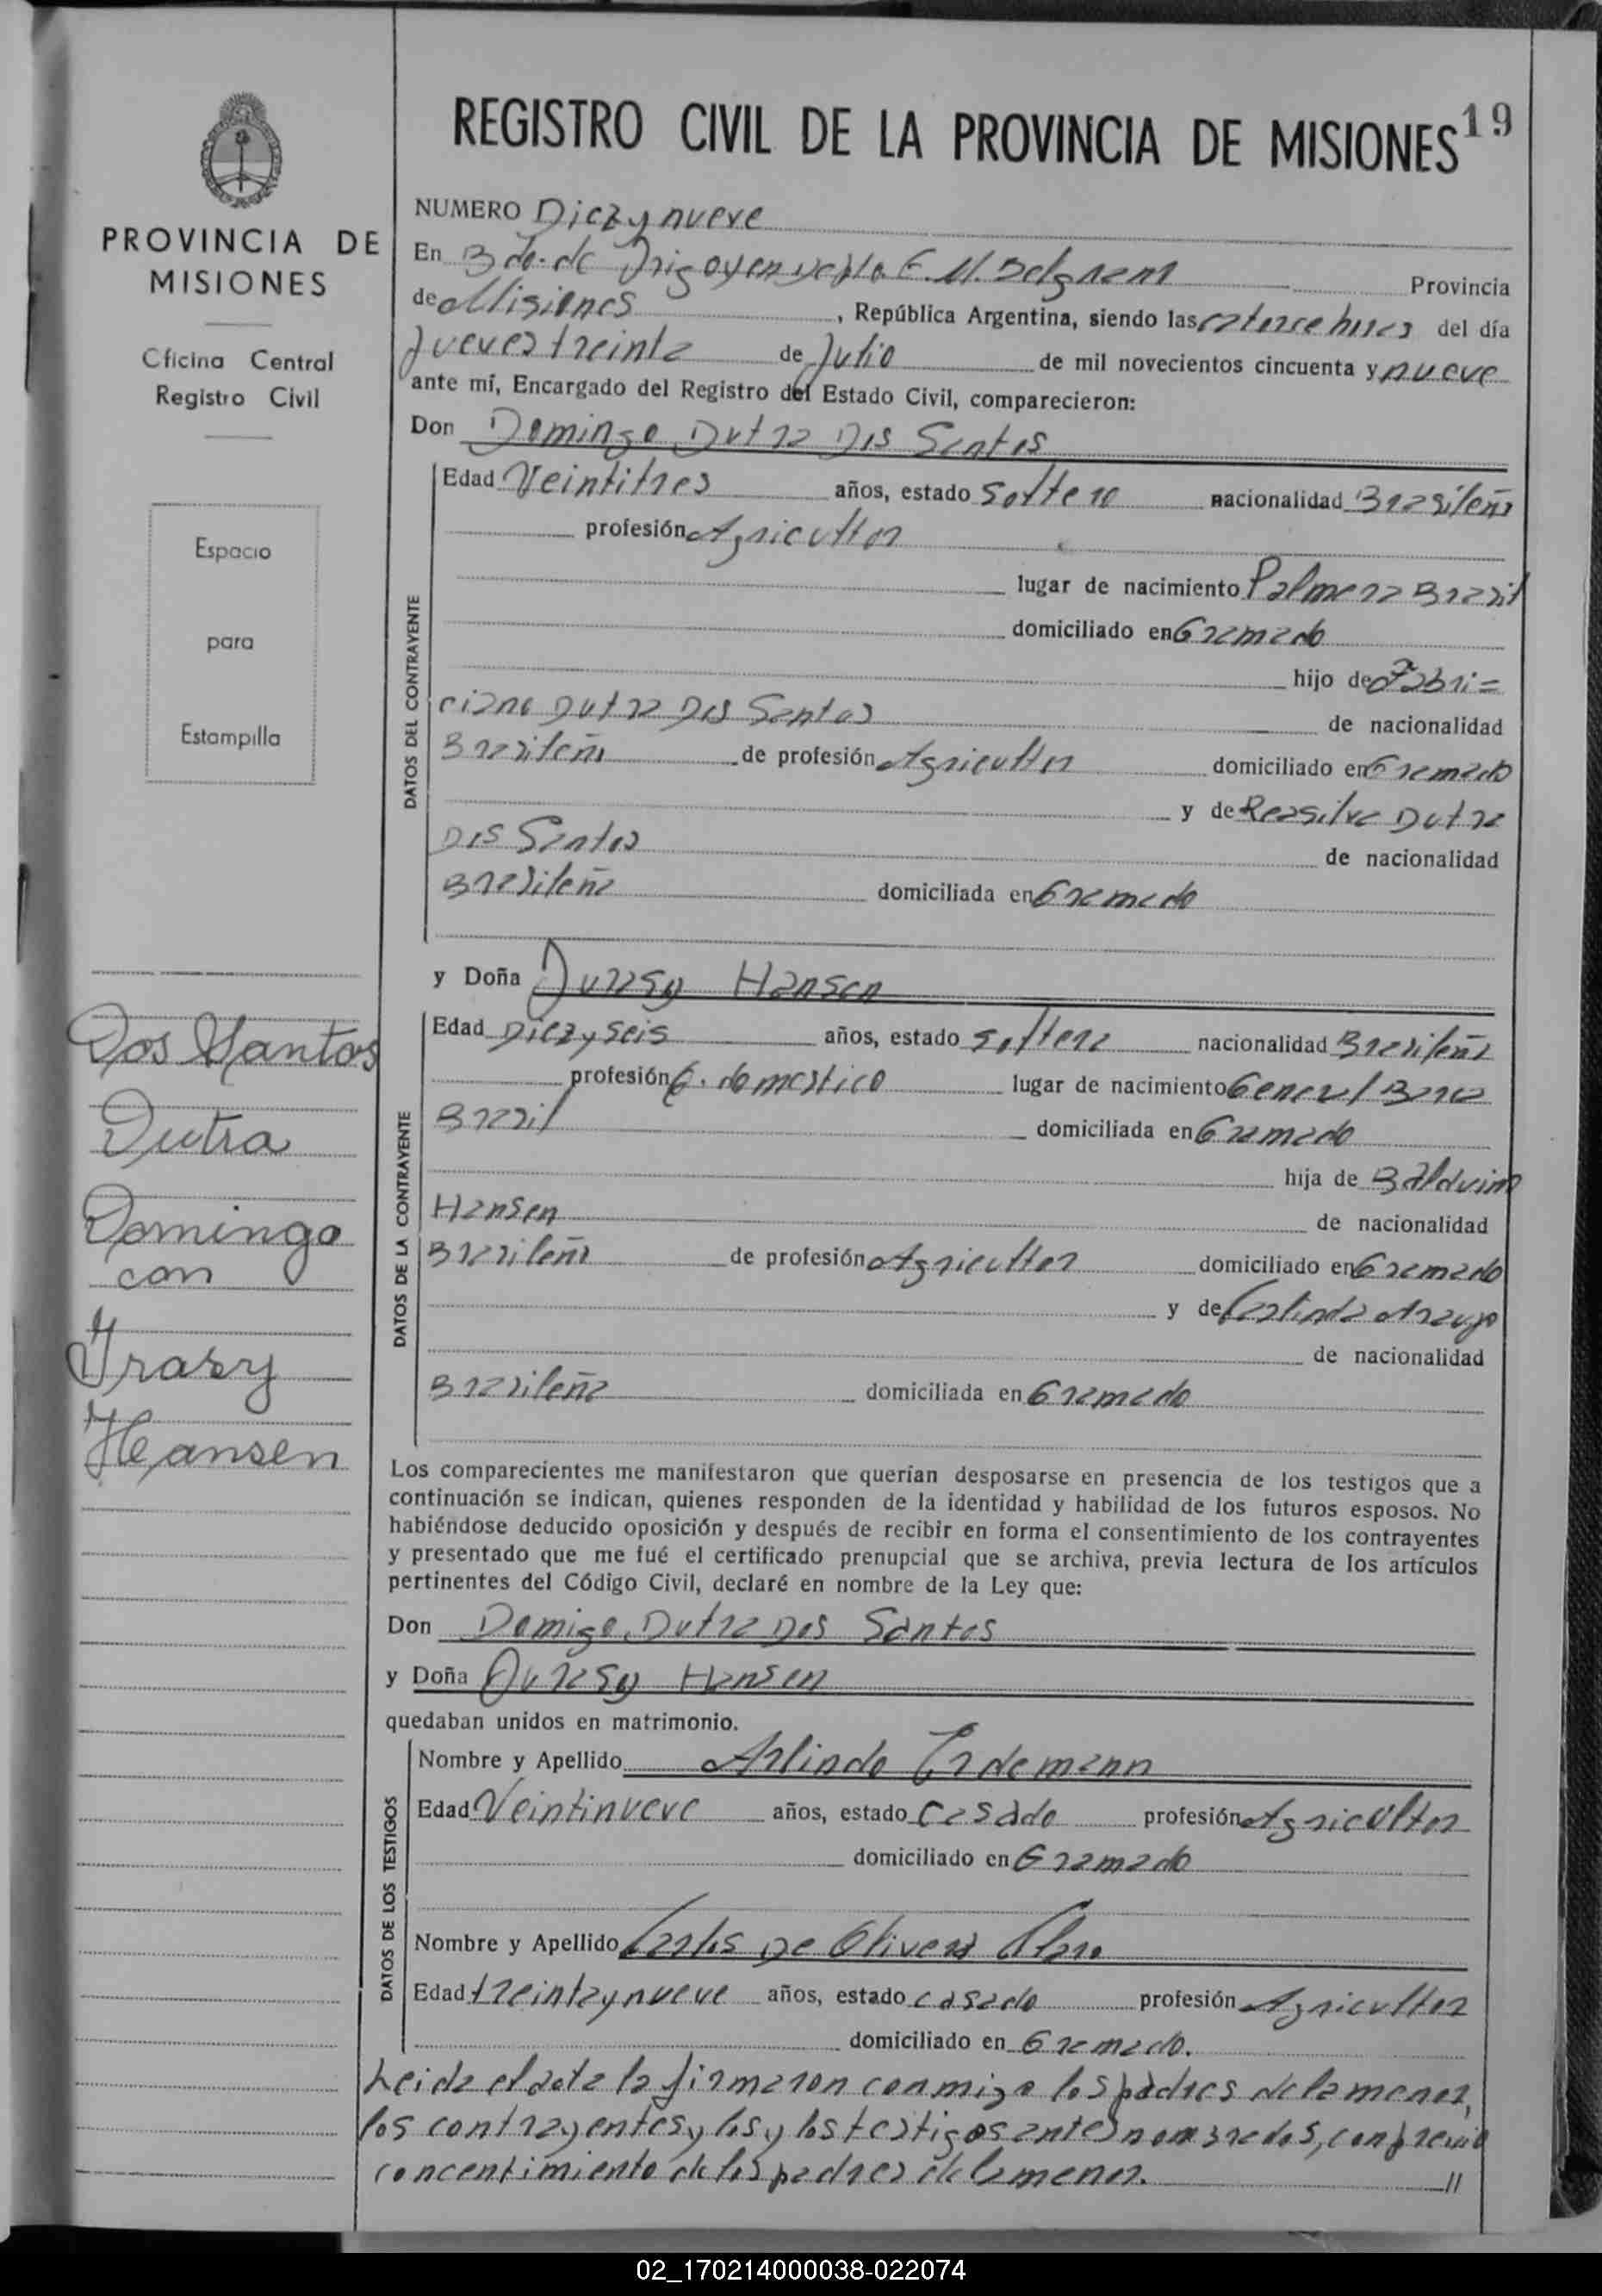 REGISTRO CIVIL DE LA PROVINCIA DE MISIONES 19
PROVINCIA DE
MISIONES
Oficina Central
Registro Civil
Espacio
para
Estampilla
Dos Santos
Dutra
Domingo
con
Yrasy
Heansen
NUMERO Diez y nueve
En Bdo. de Irigoyen Depto G. M. Belgrano Provincia
de Misiones, República Argentina, siendo las catorce horas del día
Jueves treinta de Julio de mil novecientos cincuenta y nueve
ante mí, Encargado del Registro del Estado Civil, comparecieron:
Don Domingo Dutra Dos Santos
DATOS DEL CONTRAYENTE
Edad Veintitres años, estado Soltero nacionalidad Brasileño
profesión Agricultor
lugar de nacimiento Palmera Brasil
domiciliado en Gramado
hijo de Fabri=
ciano Dutra Dos Santos de nacionalidad
Brasileño de profesión Agricultor domiciliado en Gramado
y de Reasilva Dutra
Dos Santos de nacionalidad
Brasileña domiciliada en Gramado
y Doña Jurasy Hansen
DATOS DE LA CONTRAYENTE
Edad Diez y seis años, estado Soltera nacionalidad Brasileña
profesión Q. domestico lugar de nacimiento General
Brasil domiciliada en Gramado
hija de Balduino
Hansen de nacionalidad
Brasileño de profesión Agricultor domiciliado en Gramado
y de Carlinda Araujo
de nacionalidad
Brasileña domiciliada en Gramado
Los comparecientes me manifestaron que querían desposarse en presencia de los testigos que a
continuación se indican, quienes responden de la identidad y habilidad de los futuros esposos. No
habiéndose deducido oposición y después de recibir en forma el consentimiento de los contrayentes
y presentado que me fué el certificado prenupcial que se archiva, previa lectura de los artículos
pertinentes del Código Civil, declaré en nombre de la Ley que:
Don Domigo Dutra Dos Santos
y Doña Jurasy Hansen
quedaban unidos en matrimonio.
DATOS DE LOS TESTIGOS
Nombre y Apellido Arlindo Erdemann
Edad Veintinueve años, estado Casado profesión Agricultor
domiciliado en Gramado
Nombre y Apellido Carlos De Olivera
Edad treinta y nueve años, estado casado profesión Agricultor
domiciliado en Gramado.
Leida el acta la firmaron conmigo los padres de la menor,
los contrayentes y los y los testigos antes nombrados, con previo
concentimiento de los padres de la menor. //
02_170214000038-022074